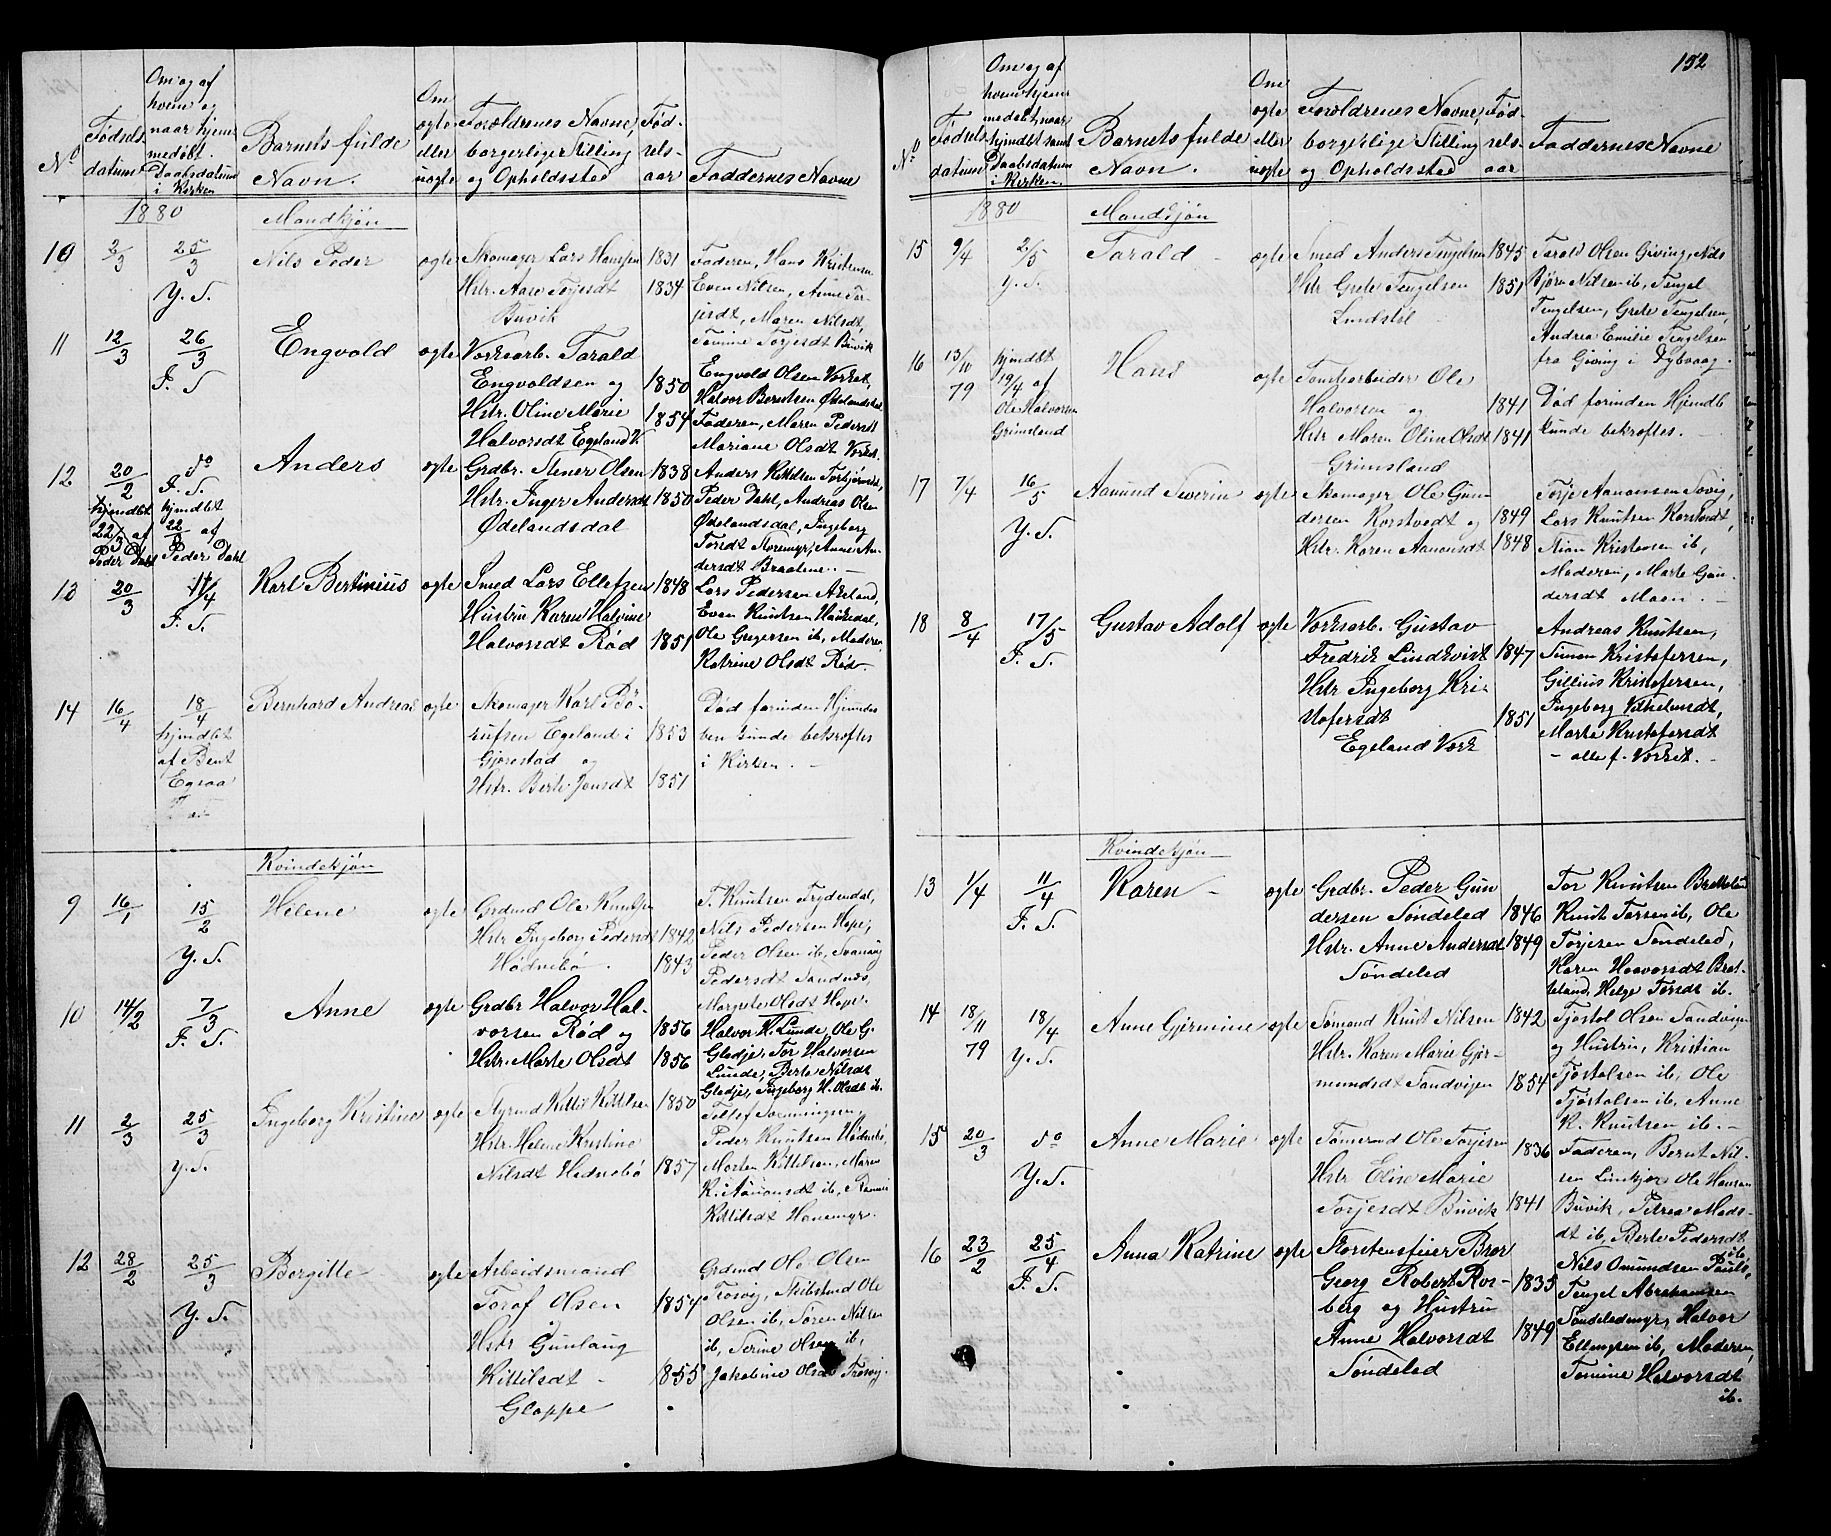 152
No
Fødsels-
datum
Om og af
hvem og
naar hjem-
medøbt.
Daabsdatum
i Kirken
Barnets fulde
Navn.
Om
ægte
eller
uægte
Forældrenes Navne,
borgerlige Stilling
og Opholdssted
Fød-
sels-
aar
Faddernes Navne
1880
Mandkjøn
10
2/3
25/3
Y. S.
Nils Peder
ægte
Skomager Lars Hansen
Hstr. Aase Torjesdt
Buvik
1831
1834
Faderen, Hans Kristensen
Even Nilsen, Anne Tor-
jesdt, Maren Nilsdt,
Tomine Torjesdt Buvik
11
12/3
26/3
F. S.
Engvold
ægte
Værksarb. Tarald
Engvoldsen og
Hstr. Oline Marie
Halvorsdt Egeland V.
1850
1854
Engvold Olsen Værket,
Halvor Berntsen Ødelandsdal
Faderen, Maren Pedersdt
Mariane Olsdt Værket.
12
20/2
hjemdøbt
22/3 af
Peder Dahl
do
F. S.
hjemdøbt
22/3 af
Peder Dahl
Anders
ægte
Grdbr. Stener Olsen
Hstr. Inger Andersdt
Ødelandsdal
1838
1850
Anders Kittilsen
Peder Dahl, Andreas Olsen
Ødelandsdal, Ingeborg
Torsdt Noremyr, Anne An-
dersdt Braatene. -
13
20/3
11/4
F. S.
Karl Bertinius
ægte
Smed Lars Ellefsen
Hustru Karen Halvine
Halvorsdt Rød
1848
1851
Lars Pedersen Akeland,
Even Knutsen Haukedal,
Ole Gregersen ib, Moderen
Katrine Olsdt Rød -
14
16/4
18/4
hjemdøbt
af Bent
Egsaa
Bernhard Andreas
ægte
Skomager Karl Bø-
rufsen Egeland i
Gjerestad og
Hstr. Berte Jensdt
1853
1851
Død forinden Hjemdaa-
ben kunde bekræftes
i Kirken. -
Kvindekjøn
9
16/1
15/2
Y. S.
Helene
ægte
Grdmd Ole Knutsen
Hstr. Ingeborg Pedersdt
Hødnebø.
1842
1843
T. Knutsen Frydendal,
Nils Pedersen Hope,
Peder Olsen ib, Svanaug
Pedersdt Sandnes,
Margrete Olsdt Hope.
10
14/2
7/3
F. S.
Anne
ægte
Grdbr Halvor Hal-
vorsen Rød og
Hstr. Marte Olsdt
1856
1856
Halvor H. Lunde, Ole G.
Gledje, Tor Halvorsen
Lunde, Berte Nilsdt
Gledje, Ingeborg H. Olsdt ib.
11
2/3
25/3
Y. S.
Ingeborg Kristine
ægte
Styrmd Kittil Kittilsen
Hstr. Helene Kristine
Nilsdt Hødnebø
1850
1857
Tellef Sonningsen,
Peder Knutsen Hødnebø,
Morten Kittilsen, Maren
K. Aanonsdt ib,
Kittilsdt Hanemyr.
12
28/2
25/3
Y. S.
Borgitte
ægte
Arbeidsmand
Toraf Olsen
Hstr Gunlaug
Kittilsdt -
Gloppe
1854
1855
Grdmd Ole Olsen
Trøsvig, Skibstmd Ole
Olsen ib, Søren Nilsen
ib, Serine Olsen ib,
Jakobine Olsdt Trøsvig.
No
Fødsels-
datum
Om og af
hvem hjem-
medøbt, naar
hjemdøbt samt
Daabsdatum
i Kirken
Barnets fulde
Navn.
Om
ægte
eller
uægte
Forældrenes Navne,
borgerlige Stilling
og Opholdssted
Fød-
sels-
aar
Faddernes Navne
1880
Mandkjøn
15
9/4
2/5
Y. S.
Tarald -
ægte
Smed Anders
Hstr Grete Tengelsen
Lindstøl
1845
1851
Tarald Olsen Giving, Nils
Bjørn Nilsen ib, Tengel
Tengelsen, Grete Tengelsen,
Andrea Emilie Tengelsen
fra Giving i Dybvaag.
16
13/10
79
hjemdøbt
19/4 af
Ole Halvorsen
Grimsland
Hans
ægte
Tomtearbeider Ole
Halvorsen og
Hstr Maren Oline Olsdt
Grimsland
1841
1841
Død forinden Hjemdb
kunde bekræftes. -
17
7/4
16/5
Y. S.
Aamund Severin
ægte
Skomager Ole Gun-
dersen Korstvedt og
Hstr. Karen Aanonsdt
1849
1848
Torje Aanonsen Søvig,
Lars Knutsen Korstvedt,
Stian Kristensen ib,
Moderen, Marte Gun-
dersdt Moen. -
18
8/4
17/5
F. S.
Gustav Adolf
ægte
Værksarb. Gustav
Fredrik Lindkvist
Hstr Ingeborg Kri-
stofersdt
Egeland Værk
1847
1851
Andreas Knutsen,
Simon Kristofersen,
Gillius Kristofersen,
Ingeborg Vilhelmsdt,
Marte Kristofersdt
- alle f. Værket. -
Kvindekjøn
13
1/4
11/4
F. S.
Karen -
ægte
Grdbr. Peder Gun
dersen Søndeled
Hstr. Anne Andersdt
Søndeled
1846
1849
Tor Knutsen Brekkeland
Knut Torsen ib, Ole
Torjesen Søndeled,
Karen Haavorsdt Bræk-
keland, Helge Torsdt ib.
14
18/11
79
18/4
Y. S.
Anne Girmine
ægte
Sømand Knut Nilsen
Hstr. Karen Marie Gjer-
mundsdt Sandvigen
1842
1854
Tjøstol Olsen Sandvigen
og Hustru, Kristian
Tjøstolsen ib, Ole
Tjøstolsen ib, Anne
K. Knutsen ib. -
15
20/3
do
Y. S.
Anne Marie
ægte
Tømmermd Ole Torjesen
Hstr Elise Marie
Torjesdt Buvik
1836
1841
Faderen, Bernt Nil-
sen Lindkjær Ole Hansen
Buvik, Petrea Mads-
dt ib, Berte Pedersdt
ib.
16
23/2
25/4
F. S.
Anna Katrine
ægte
Skorstensfeier Bror
Georg Robert Ros-
berg og Hustru
Anne Halvorsdt
Søndeled
1835
1849
Nils Omundsen
Tengel Abrahamsen
Søndeledmyr, Halvor
Ellingsen ib, Moderen,
Tomine Halvorsdt
ib.